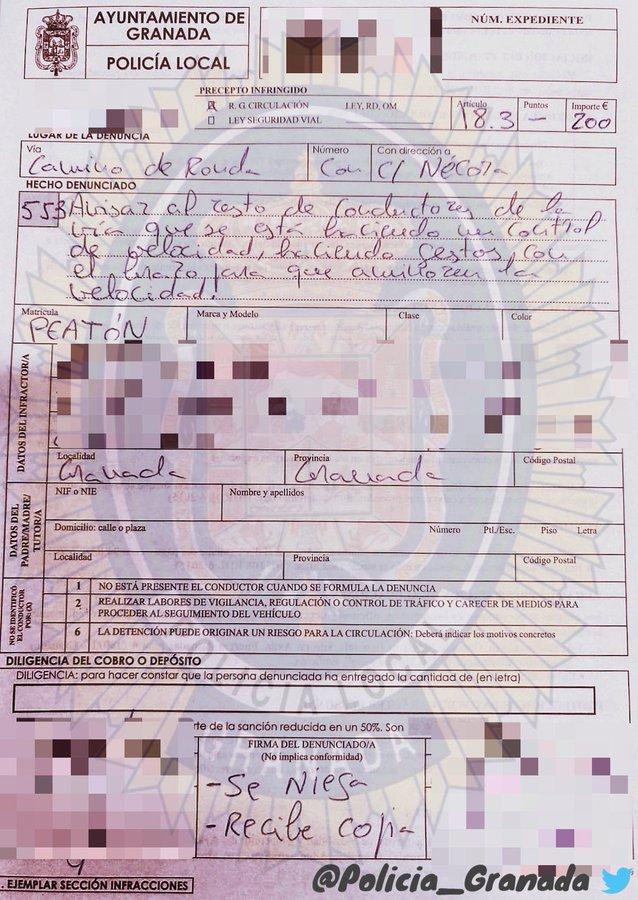 AYUNTAMIENTO DE
GRANADA
POLICÍA LOCAL
NÚM. EXPEDIENTE
PRECEPTO INFRINGIDO
R. G. CIRCULACIÓN LEY, RD, OM
LEY SEGURIDAD VIAL
Artículo Puntos Importe €
18.3 - 200
LUGAR DE LA DENUNCIA
Vía Número Con dirección a
Camino de Ronda Con C/
HECHO DENUNCIADO
553 Avisar al resto de conductores de la
vía que se está haciendo un control
de velocidad, haciendo gestos con
el brazo para que aminoren la
velocidad!
Matrícula Marca y Modelo Clase Color
PEATÓN
DATOS DEL INFRACTOR/A
Localidad Provincia Código Postal
Granada Granada
DATOS DEL
PADRE/MADRE/
TUTOR/A
NIF o NIE Nombre y apellidos
Domicilio: calle o plaza Número Ptl./Esc. Piso Letra
Localidad Provincia Código Postal
NO SE IDENTIFICÓ
EL CONDUCTOR
POR: (X)
1 NO ESTÁ PRESENTE EL CONDUCTOR CUANDO SE FORMULA LA DENUNCIA
2 REALIZAR LABORES DE VIGILANCIA, REGULACIÓN O CONTROL DE TRÁFICO Y CARECER DE MEDIOS PARA
PROCEDER AL SEGUIMIENTO DEL VEHÍCULO
6 LA DETENCIÓN PUEDE ORIGINAR UN RIESGO PARA LA CIRCULACIÓN: Deberá indicar los motivos concretos
DILIGENCIA DEL COBRO O DEPÓSITO
DILIGENCIA: para hacer constar que la persona denunciada ha entregado la cantidad de (en letra)
rte de la sanción reducida en un 50%. Son
FIRMA DEL DENUNCIADO/A
(No implica conformidad)
- Se Niega
- Recibe copia
POLICIA LOCAL
GRANADA
. EJEMPLAR SECCIÓN INFRACCIONES
@Policia_Granada